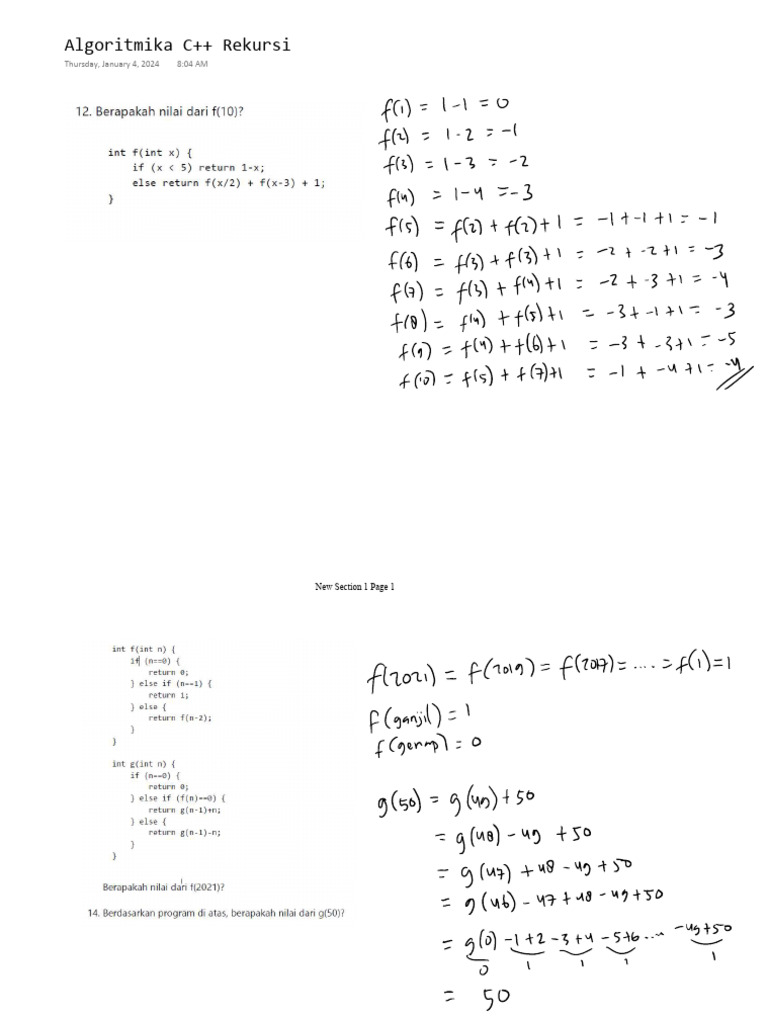 Algoritmika C++ Rekursi
Thursday, January 4, 2024 8:04 AM
12. Berapakah nilai dari f(10)?
int f(int x) {
if (x < 5) return 1-x;
else return f(x/2) + f(x-3) + 1;
}
f(1) = 1-1 = 0
f(2) = 1-2 = -1
f(3) = 1-3 = -2
f(4) = 1-4 = -3
f(5) = f(2) + f(2) + 1 = -1 + -1 + 1 = -1
f(6) = f(3) + f(3) + 1 = -2 + -2 + 1 = -3
f(7) = f(3) + f(4) + 1 = -2 + -3 + 1 = -4
f(8) = f(4) + f(5) + 1 = -3 + -1 + 1 = -3
f(9) = f(4) + f(6) + 1 = -3 + -3 + 1 = -5
f(10) = f(5) + f(7) + 1 = -1 + -4 + 1 = -4
New Section 1 Page 1
int f(int n) {
if (n==0) {
return 0;
} else if (n==1) {
return 1;
} else {
return f(n-2);
}
}
int g(int n) {
if (n==0) {
return 0;
} else if (f(n)==0) {
return g(n-1)+n;
} else {
return g(n-1)-n;
}
}
Berapakah nilai dari f(2021)?
14. Berdasarkan program di atas, berapakah nilai dari g(50)?
f(2021) = f(2019) = f(2017) = .... = f(1) = 1
f(ganjil) = 1
f(genap) = 0
g(50) = g(49) + 50
= g(48) - 49 + 50
= g(47) + 48 - 49 + 50
= g(46) - 47 + 48 - 49 + 50
= g(0) - 1 + 2 - 3 + 4 - 5 + 6 ... - 49 + 50
0 1 1 1 1
= 50